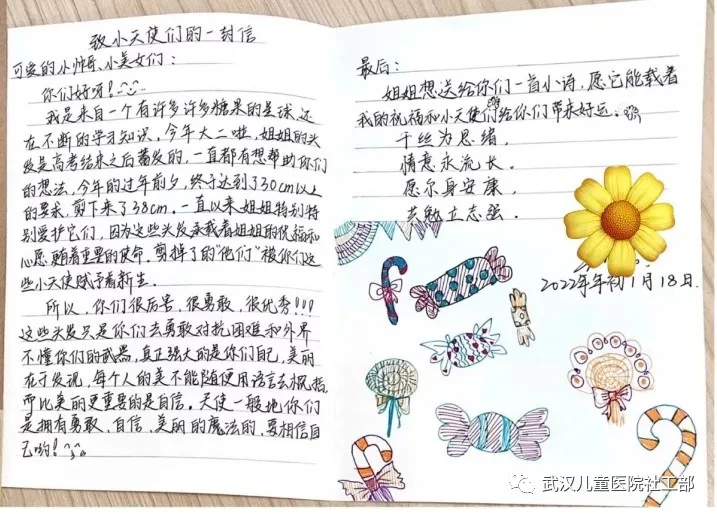 致小天使们的一封信
可爱的小帅哥、小美女们：
你们好呀！
我是来自一个有许多许多糖果的星球，还
在不断的学习知识。今年大二啦，姐姐的头
发是高考结束之后蓄发的，一直都有想帮助你们
的想法，今年的过年前夕，终于达到了30cm以上
的要求，剪下来了38cm。一直以来姐姐特别特
别爱护它们，因为这些头发承载着姐姐的祝福和
心愿，更有着重要的使命，剪掉了的"他们"被你们这
些小天使赋予着新生。
所以，你们很厉害，很勇敢，很优秀！！！
这些头发只是你们去勇敢对抗困难和外界
不懂你们的武器，真正强大的是你们自己，美丽
在于发现，每个人的美不能随便用语言去概括，
而比美丽更重要的是自信。天使一般地你们
是拥有勇敢、自信、美丽的魔法的，要相信自
己哟！
最后：
姐姐想送给你们一首小诗，愿它能载着
我的祝福和小天使们给你们带来好运。
千丝为思绪，
情意永流长。
愿尔身安康，
去勉立志强。
2022年年初1月18日.
武汉儿童医院社工部